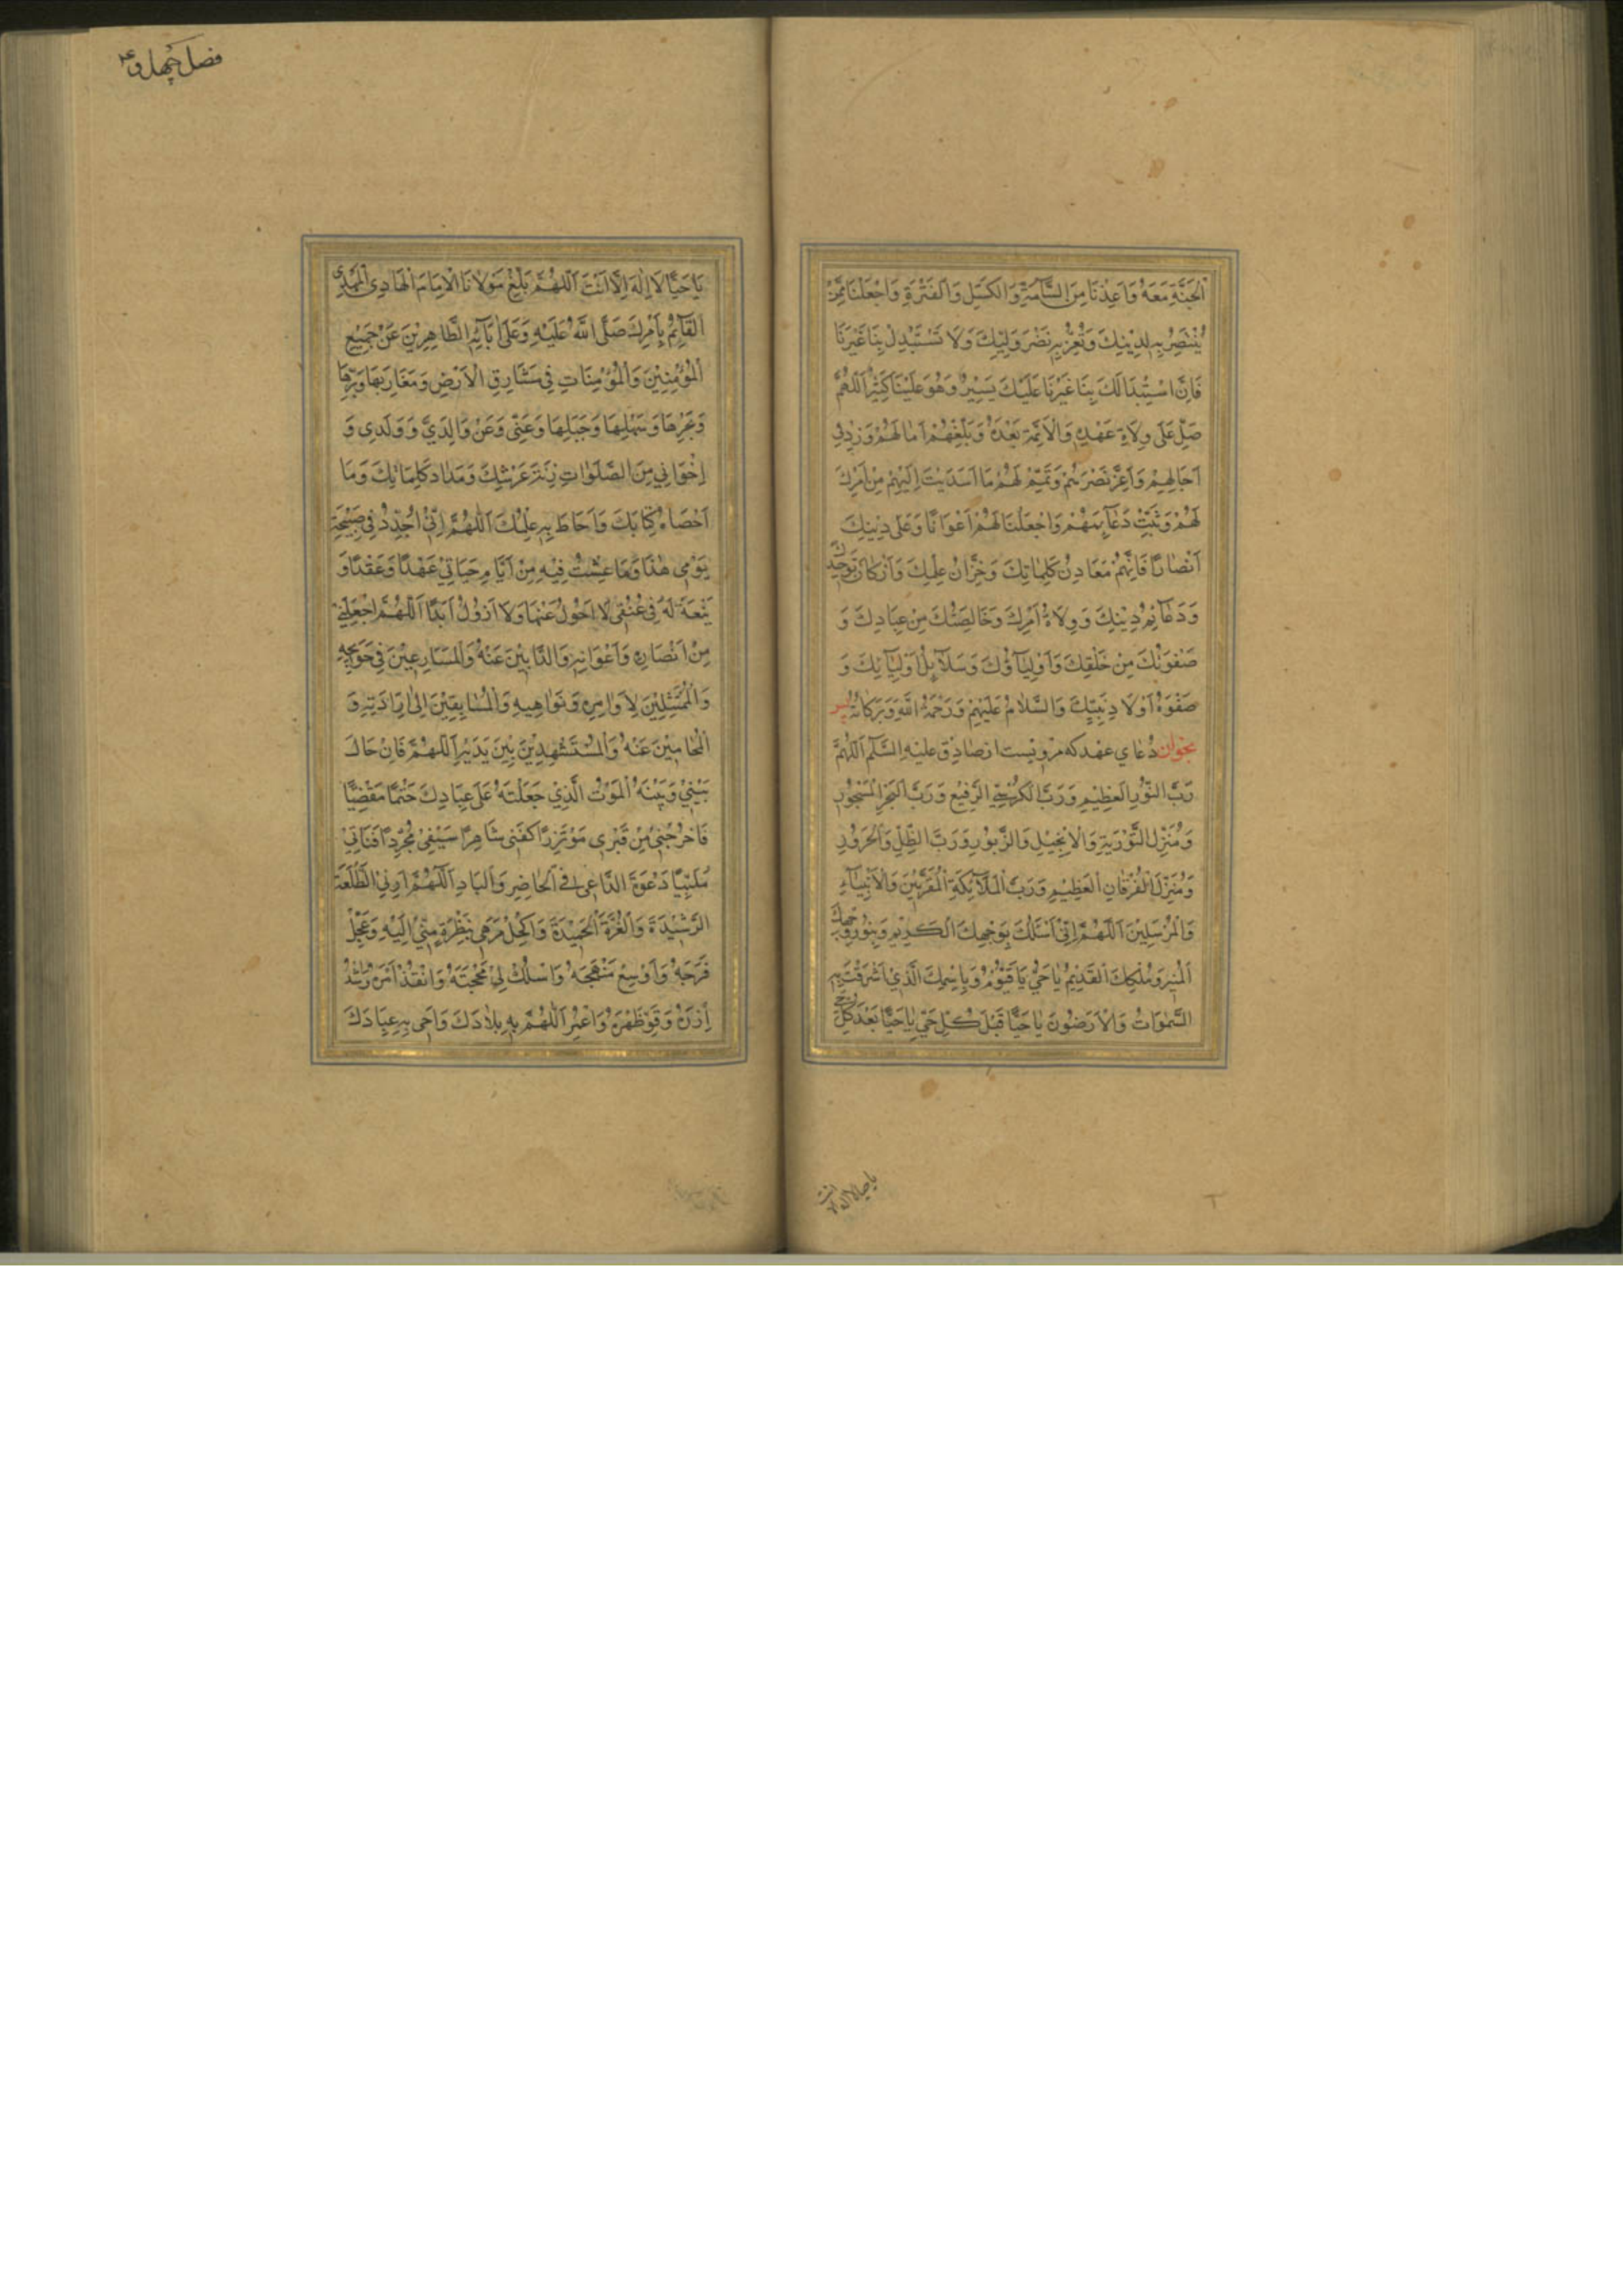 اَلْجَنَّةِ مَعَهُ وَاَعِذْنَا مِنَ السَّآمَةِ وَالْكَسَلِ وَالْفَتْرَةِ وَاجْعَلْنَا مِمَّنْ
يُنْتَصَرُ بِهِ لِدِيْنِكَ وَتُعِزُّ بِهِ نَصْرَ وَلِيِّكَ وَلَا تَسْتَبْدِلْ بِنَا غَيْرَنَا
فَاِنَّ اسْتِبْدَالَكَ بِنَا غَيْرَنَا عَلَيْكَ يَسِيْرٌ وَهُوَ عَلَيْنَا كَثِيْرٌ اَللّٰهُمَّ
صَلِّ عَلٰى وِلَاةِ عَهْدِهِ وَالْاَئِمَّةِ بَعْدَهُ وَبَلِّغْهُمْ اٰمَالَهُمْ وَزِدْ فِى
اٰجَالِهِمْ وَاَعِزَّ نَصْرَهُمْ وَتَمِّمْ لَهُمْ مَا اَسْدَيْتَ اِلَيْهِمْ مِنْ اَمْرِكَ
لَهُمْ وَثَبِّتْ دَعَآئِمَهُمْ وَاجْعَلْنَا لَهُمْ اَعْوَانًا وَعَلٰى دِيْنِكَ
اَنْصَارًا فَاِنَّهُمْ مَعَادِنُ كَلِمَاتِكَ وَخُزَّانُ عِلْمِكَ وَاَرْكَانُ تَوْحِيْدِكَ
وَدَعَآئِمُ دِيْنِكَ وَوِلَاةُ اَمْرِكَ وَخَالِصَتُكَ مِنْ عِبَادِكَ وَ
صَفْوَتُكَ مِنْ خَلْقِكَ وَاَوْلِيَآؤُكَ وَسَلَآئِلُ اَوْلِيَآئِكَ وَ
صَفْوَةُ اَوْلَادِ نَبِيِّكَ وَالسَّلَامُ عَلَيْهِمْ وَرَحْمَةُ اللّٰهِ وَبَرَكَاتُهُ پس
بخوان دُعَاي عهد كه مرويست از صَادِق عليهِ السَّلَم اَللّٰهُمَّ
رَبَّ النُّوْرِ الْعَظِيْمِ وَرَبَّ الْكُرْسِيِّ الرَّفِيْعِ وَرَبَّ الْبَحْرِ الْمَسْجُوْرِ
وَمُنَزِّلَ التَّوْرٰيةِ وَالْاِنْجِيْلِ وَالزَّبُوْرِ وَرَبَّ الظِّلِّ وَالْحَرُوْرِ
وَمُنَزِّلَ الْفُرْقَانِ الْعَظِيْمِ وَرَبَّ الْمَلَآئِكَةِ الْمُقَرَّبِيْنَ وَالْاَنْبِيَآءِ
وَالْمُرْسَلِيْنَ اَللّٰهُمَّ اِنِّى اَسْئَلُكَ بِوَجْهِكَ الْكَرِيْمِ وَبِنُوْرِ وَجْهِكَ
الْمُنِيْرِ وَمُلْكِكَ الْقَدِيْمِ يَا حَيُّ يَا قَيُّوْمُ وَبِاسْمِكَ الَّذِيْ اَشْرَقَتْ بِهِ
السَّمٰوَاتُ وَالْاَرَضُوْنَ يَا حَيًّا قَبْلَ كُلِّ حَيٍّ يَا حَيًّا بَعْدَ كُلِّ حَيٍّ
يا حيا لا اله الا انت
فصل چهل و
يَا حَيًّا لَا اِلٰهَ اِلَّا اَنْتَ اَللّٰهُمَّ بَلِّغْ مَوْلَانَا الْاِمَامَ الْهَادِى الْمَهْدِىَّ
الْقَآئِمَ بِاَمْرِكَ صَلَّى اللّٰهُ عَلَيْهِ وَعَلٰى اٰبَآئِهِ الطَّاهِرِيْنَ عَنْ جَمِيْعِ
الْمُؤْمِنِيْنَ وَالْمُؤْمِنَاتِ فِى مَشَارِقِ الْاَرْضِ وَمَغَارِبِهَا وَبَرِّهَا
وَبَحْرِهَا وَسَهْلِهَا وَجَبَلِهَا وَعَنِّى وَعَنْ وَالِدَيَّ وَوَلَدِى وَ
اِخْوَانِي مِنَ الصَّلَوَاتِ زِنَةَ عَرْشِكَ وَمِدَادَ كَلِمَاتِكَ وَمَا
اَحْصَاهُ كِتَابُكَ وَاَحَاطَ بِهِ عِلْمُكَ اَللّٰهُمَّ اِنِّى اُجَدِّدُ فِى صَبِيْحَةِ
يَوْمِى هٰذَا وَمَا عِشْتُ فِيْهِ مِنْ اَيَّامِ حَيَاتِيْ عَهْدًا وَعَقْدًا وَ
بَيْعَةً لَهُ فِى عُنُقِى لَا اَحُوْلُ عَنْهَا وَلَا اَزُوْلُ اَبَدًا اَللّٰهُمَّ اجْعَلْنِيْ
مِنْ اَنْصَارِهِ وَاَعْوَانِهِ وَالذَّابِّيْنَ عَنْهُ وَالْمُسَارِعِيْنَ فِى حَوَآئِجِهِ
وَالْمُمْتَثِلِيْنَ لِاَوَامِرِهِ وَنَوَاهِيْهِ وَالسَّابِقِيْنَ اِلٰى اِرَادَتِهِ وَ
الْمُحَامِيْنَ عَنْهُ وَالْمُسْتَشْهَدِيْنَ بَيْنَ يَدَيْهِ اَللّٰهُمَّ فَاِنْ حَالَ
بَيْنِيْ وَبَيْنَهُ الْمَوْتُ الَّذِيْ جَعَلْتَهُ عَلٰى عِبَادِكَ حَتْمًا مَقْضِيًّا
فَاَخْرِجْنِى مِنْ قَبْرِى مُؤْتَزِرًا كَفَنِى شَاهِرًا سَيْفِى مُجَرِّدًا قَنَاتِيْ
مُلَبِّيًا دَعْوَةَ الدَّاعِى فِى الْحَاضِرِ وَالْبَادِ اَللّٰهُمَّ اَرِنِى الطَّلْعَةَ
الرَّشِيْدَةَ وَالْغُرَّةَ الْحَمِيْدَةَ وَاكْحُلْ مَرَهِى بِنَظْرَةٍ مِنِّيْ اِلَيْهِ وَعَجِّلْ
فَرَجَهُ وَاَوْسِعْ مَنْهَجَهُ وَاسْلُكْ لِيْ مَحَجَّتَهُ وَاَنْفِذْ اَمْرَهُ وَاشْدُدْ
اَزْرَهُ وَقَوِّ ظَهْرَهُ وَاعْمُرِ اَللّٰهُمَّ بِهِ بِلَادَكَ وَاَحْىِ بِهِ عِبَادَكَ